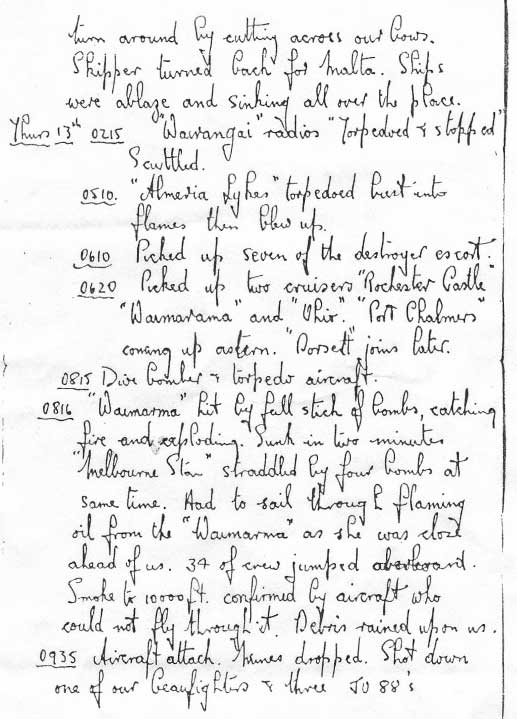 turn around by cutting across our bows.
Skipper turned back for Malta. Ships
were ablaze and sinking all over the place.
Thurs 13th 0215 "Wairangai" radios "Torpedoed & stopped"
Scuttled.
0510. "Almeria Lykes" torpedoed burst into
flames then blew up.
0610 Picked up seven of the destroyer escort.
0620 Picked up two cruisers "Rochester Castle"
"Waimarama" and "Ohio". "Port Chalmers"
coming up astern. "Dorsett" joins later.
0815 Dive bomber & torpedo aircraft.
0816 "Waimarma" hit by full stick of bombs, catching
fire and exploding. Sunk in two minutes
"Melbourne Star" straddled by four bombs at
same time. Had to sail through flaming
oil from the "Waimarma" as she was close
ahead of us. 34 of crew jumped overboard.
Smoke to 10000 ft. confirmed by aircraft who
could not fly through it. Debris rained upon us.
0935 Aircraft attack. Mines dropped. Shot down
one of our Beaufighters & three JU 88's